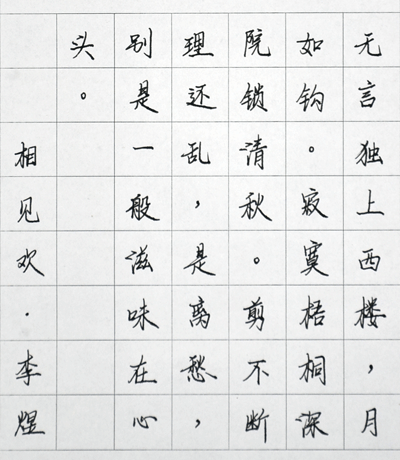 无言独上西楼，月
如钩。寂寞梧桐深
院锁清秋。剪不断
理还乱，是离愁，
别是一般滋味在心
头。
相见欢·李煜